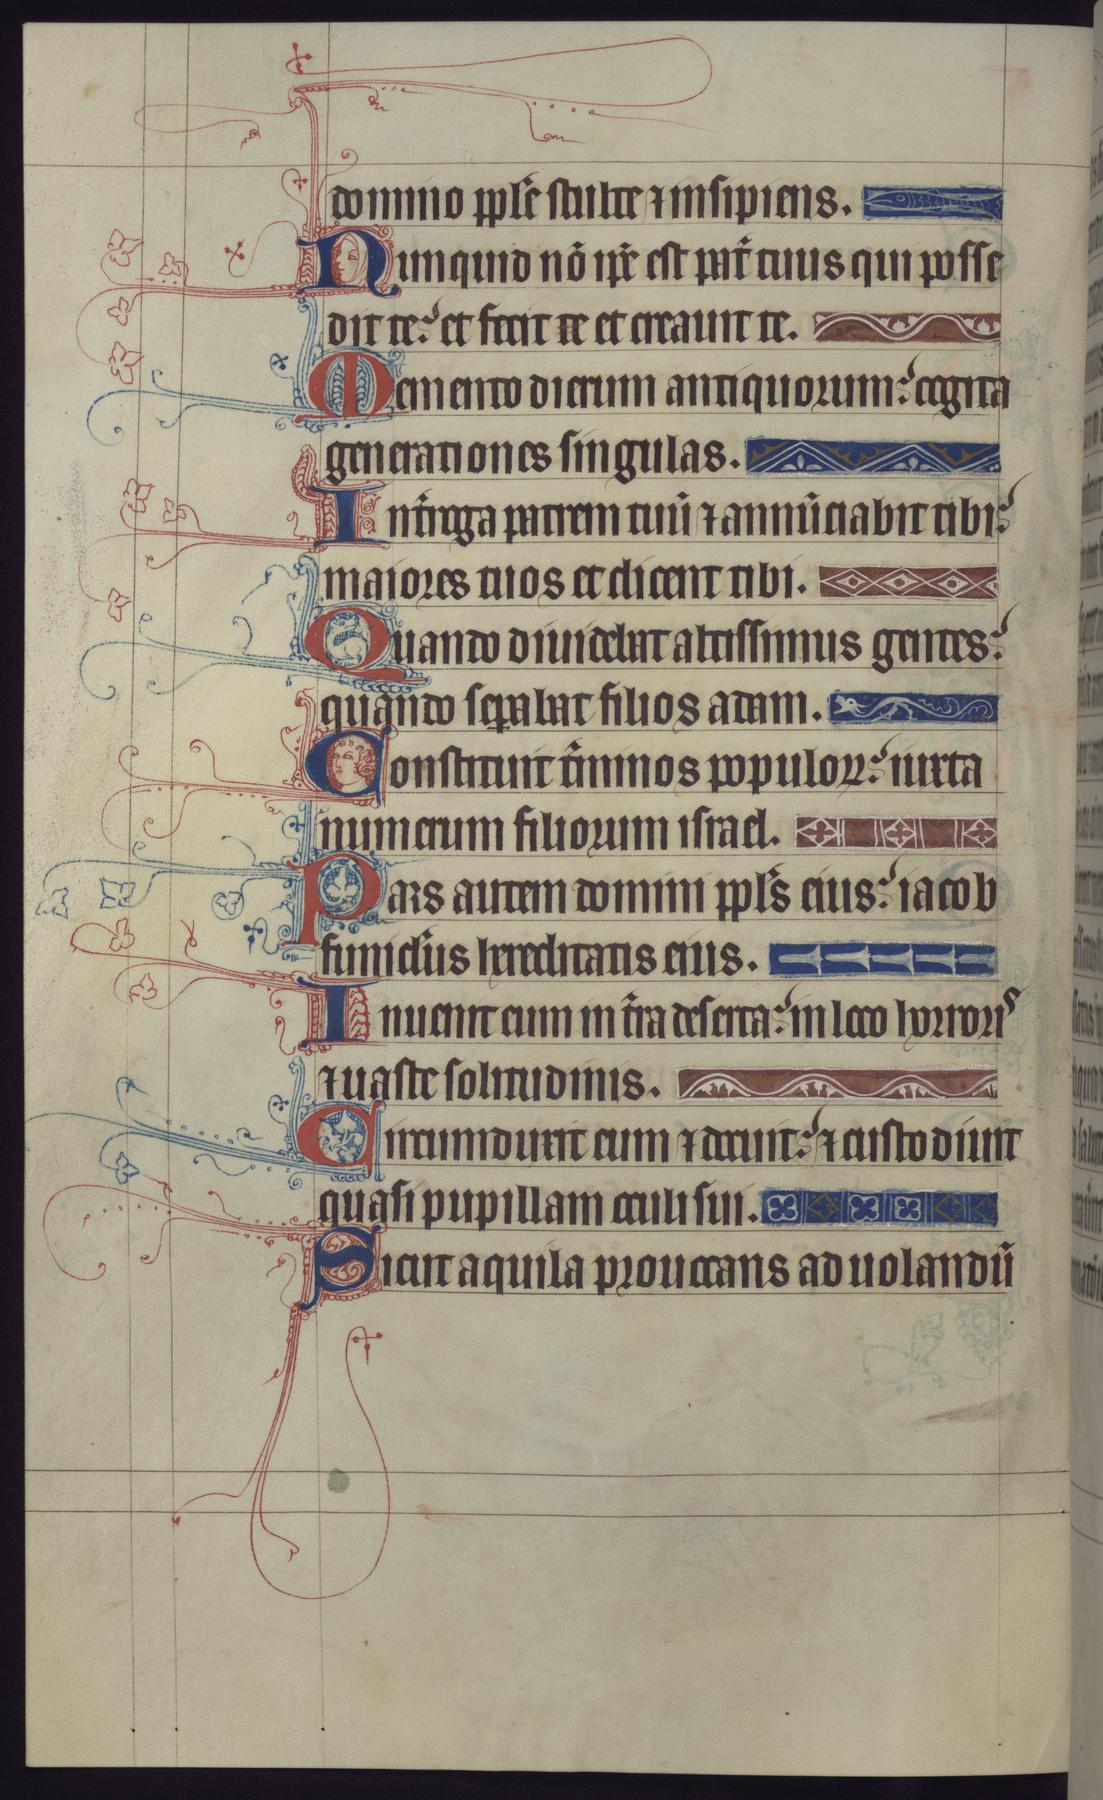 domino pp̄le stulte ⁊ insipiens.
Nunquid nō ip̄e est pat̄ tuus qui posse
dit te? et fecit te et creauit te.
Memento dierum antiquorum? cogita
generationes singulas.
Int̄roga patrem tuū ⁊ annūciabit tibi?
maiores tuos et dicent tibi.
Quando diuidebat altissimus gentes?
quando sep̱abat filios adam.
Constituit t̄minos populoꝝ? iuxta
numerum filiorum israel.
Pars autem domini pp̄ls eius? iacob
funicl̄us hereditatis eius.
Inuenit eum in t̄ra deserta? in loco horroris
⁊ uaste solitudinis.
Circumduxit eum ⁊ docuit? ⁊ custodiuit
quasi pupillam oculi sui.
Sicut aquila prouocans ad uolandū